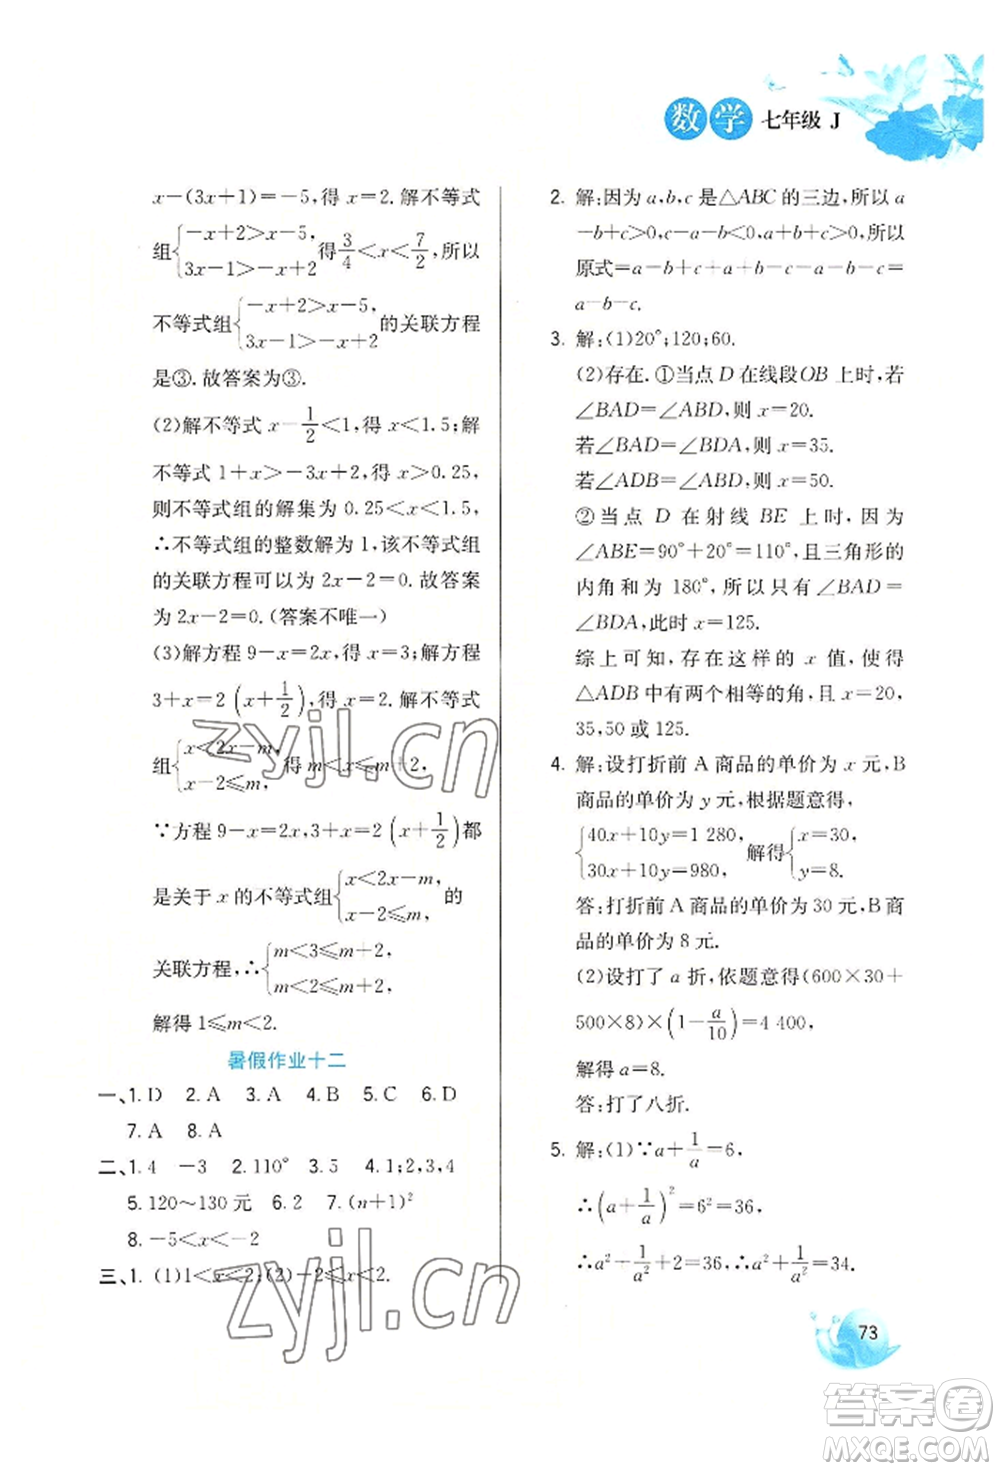 数学 七年级 J
x－(3x＋1)＝－5,得 x＝2. 解不等式
组{－x＋2＞x－5, 3x－1＞－x＋2 得 3/4＜x＜7/2,所以
不等式组{－x＋2＞x－5, 3x－1＞－x＋2 的关联方程
是③. 故答案为③.
(2)解不等式 x－1/2＜1,得 x＜1.5;解
不等式 1＋x＞－3x＋2,得 x＞0.25,
则不等式组的解集为 0.25＜x＜1.5,
∴不等式组的整数解为 1,该不等式组
的关联方程可以为 2x－2＝0. 故答案
为 2x－2＝0. (答案不唯一)
(3)解方程 9－x＝2x,得 x＝3;解方程
3＋x＝2(x＋1/2),得 x＝2. 解不等式
组{x＜2x－m, x－2≤m, 得 m＜x≤m＋2,
∵方程 9－x＝2x,3＋x＝2(x＋1/2)都
是关于 x 的不等式组{x＜2x－m, x－2≤m, 的
关联方程,∴{m＜3≤m＋2, m＜2≤m＋2,
解得 1≤m＜2.
暑假作业十二
一、1. D 2. A 3. A 4. B 5. C 6. D
7. A 8. A
二、1. 4 －3 2. 110° 3. 5 4. 1;2,3,4
5. 120～130 元 6. 2 7. (n＋1)²
8. －5＜x＜－2
三、1. (1)1＜x＜2;(2)－2≤x＜2.
2. 解:因为 a,b,c 是△ABC 的三边,所以 a
－b＋c＞0,c－a－b＜0,a＋b＞0,所以
原式＝a－b＋c＋a－b－c－a＋b－c＝
a－b－c.
3. 解:(1)20°;120;60.
(2)存在. ①当点 D 在线段OB 上时,若
∠BAD＝∠ABD,则 x＝20.
若∠BAD＝∠BDA,则 x＝35.
若∠ADB＝∠ABD,则 x＝50.
②当点 D 在射线 BE 上时,因为
∠ABE＝90°＋20°＝110°,且三角形的
内角和为 180°,所以只有∠BAD＝
∠BDA,此时 x＝125.
综上可知,存在这样的 x 值,使得
△ADB 中有两个相等的角,且 x＝20,
35,50 或 125.
4. 解:设打折前 A 商品的单价为 x 元,B
商品的单价为 y 元,根据题意得,
{40x＋10y＝1 280, 30x＋10y＝980, 解得{x＝30, y＝8.
答:打折前 A 商品的单价为 30 元,B 商
品的单价为 8 元.
(2)设打了 a 折,依题意得(600×30＋
500×8)×(1－a/10)＝4 400,
解得 a＝8.
答:打了八折.
5. 解:(1)∵a＋1/a＝6,
∴(a＋1/a)²＝6²＝36,
∴a²＋1/a²＋2＝36,∴a²＋1/a²＝34.
73
zyjl.cn
zyjl.cn
答案圈
MXQE.COM